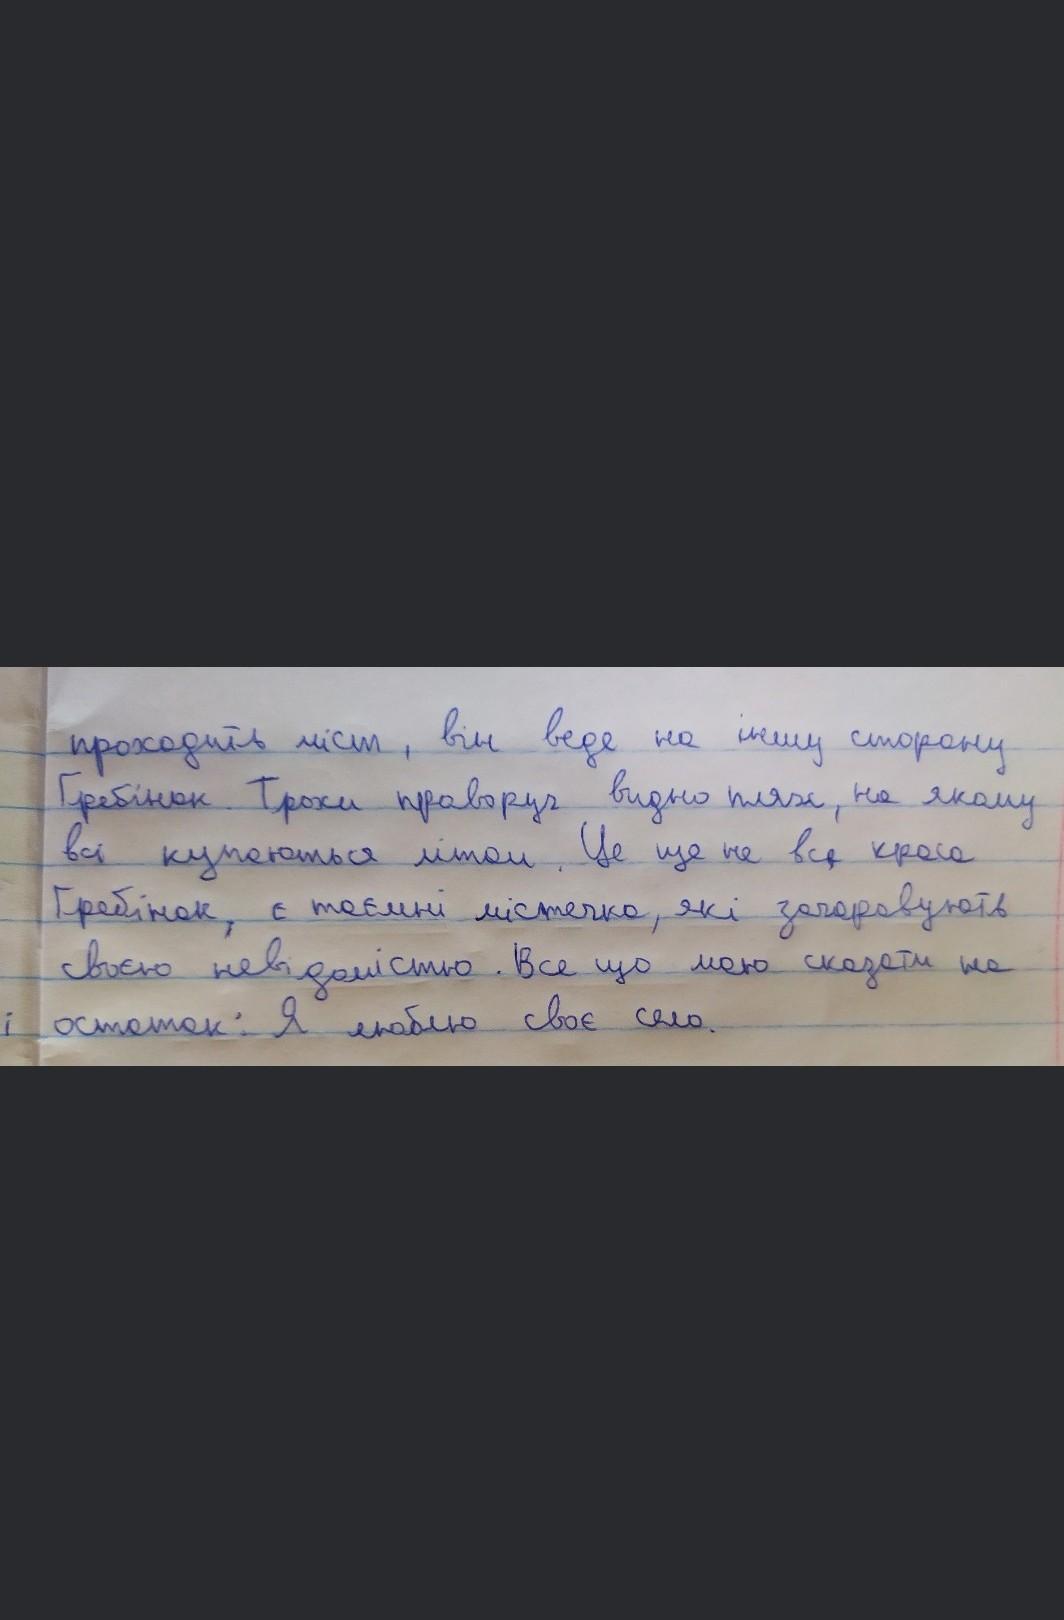 проходить міст, він веде на іншу сторону
Гребінок. Трохи праворуч видно пляж, на якому
всі купаються літом. Це ще не вся краса
Гребінок, є таємні містечка, які зачаровують
своєю невідомістю. Все що маю сказати на
і остаток: Я люблю своє село.